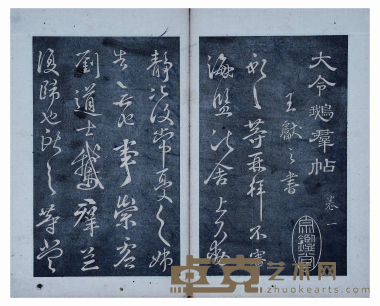 大令鵝羣帖 卷一
王獻之書
獻之等再拜不審
海鹽諸舍上下動
靜比復常憂之姊
告無他事崇虛
劉道士鵝羣並
復歸也獻之等當
卓克艺术网
zhuokearts.com